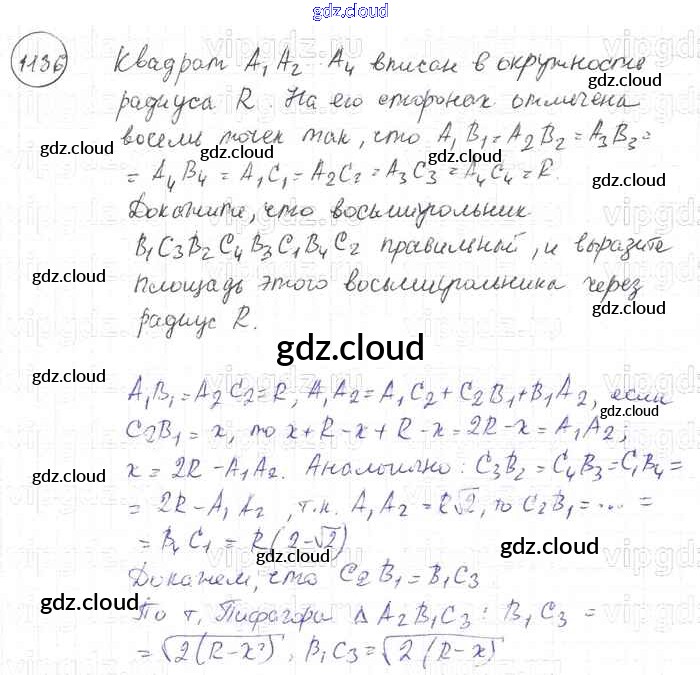 gdz.cloud
1136
Квадрат A₁A₂ A₄ вписан в окружность
радиуса R. На его сторонах отмечена
восемь точек так, что A₁B₁=A₂B₂=A₃B₃=
=A₄B₄=A₁C₁=A₂C₂=A₃C₃=A₄C₄=R.
Докажите, что восьмиугольник
B₁C₃B₂C₄B₃C₁B₄C₂ правильный, и выразите
площадь этого восьмиугольника через
радиус R.
gdz.cloud
A₁B₁=A₂C₂=R, A₁A₂=A₁C₂+C₂B₁+B₁A₂, если
C₂B₁=x, то x+R-x+R-x=2R-x=A₁A₂;
x=2R-A₁A₂. Аналогично: C₃B₂=C₄B₃=C₁B₄=
=2R-A₁A₂, т.к. A₁A₂=R√2, то C₂B₁=...=
=B₄C₁=R(2-√2)
Докажем, что C₂B₁=B₁C₃
По т. Пифагора Δ A₂B₁C₃: B₁C₃=
=√2(R-x²), B₁C₃=√2(R-x)